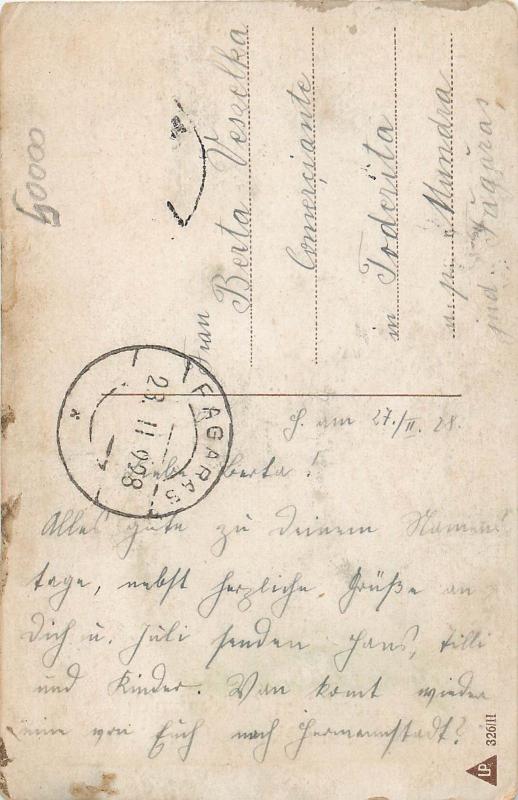 50000
Frau
Berta Veselka
Comerciante
in Toderita
u.p. Mundra
jud. Făgăraș
FĂGĂRAȘ
28. II 928
H. am 27./II. 28.
Liebe Berta!
Alles gute zu Deinem Namens
tage, nebst herzliche Grüße an
Dich u. Juli senden Hans, Tilli
und Kinder. Wan komt wieder
eine von Euch nach Hermannstadt?
LP
326/II